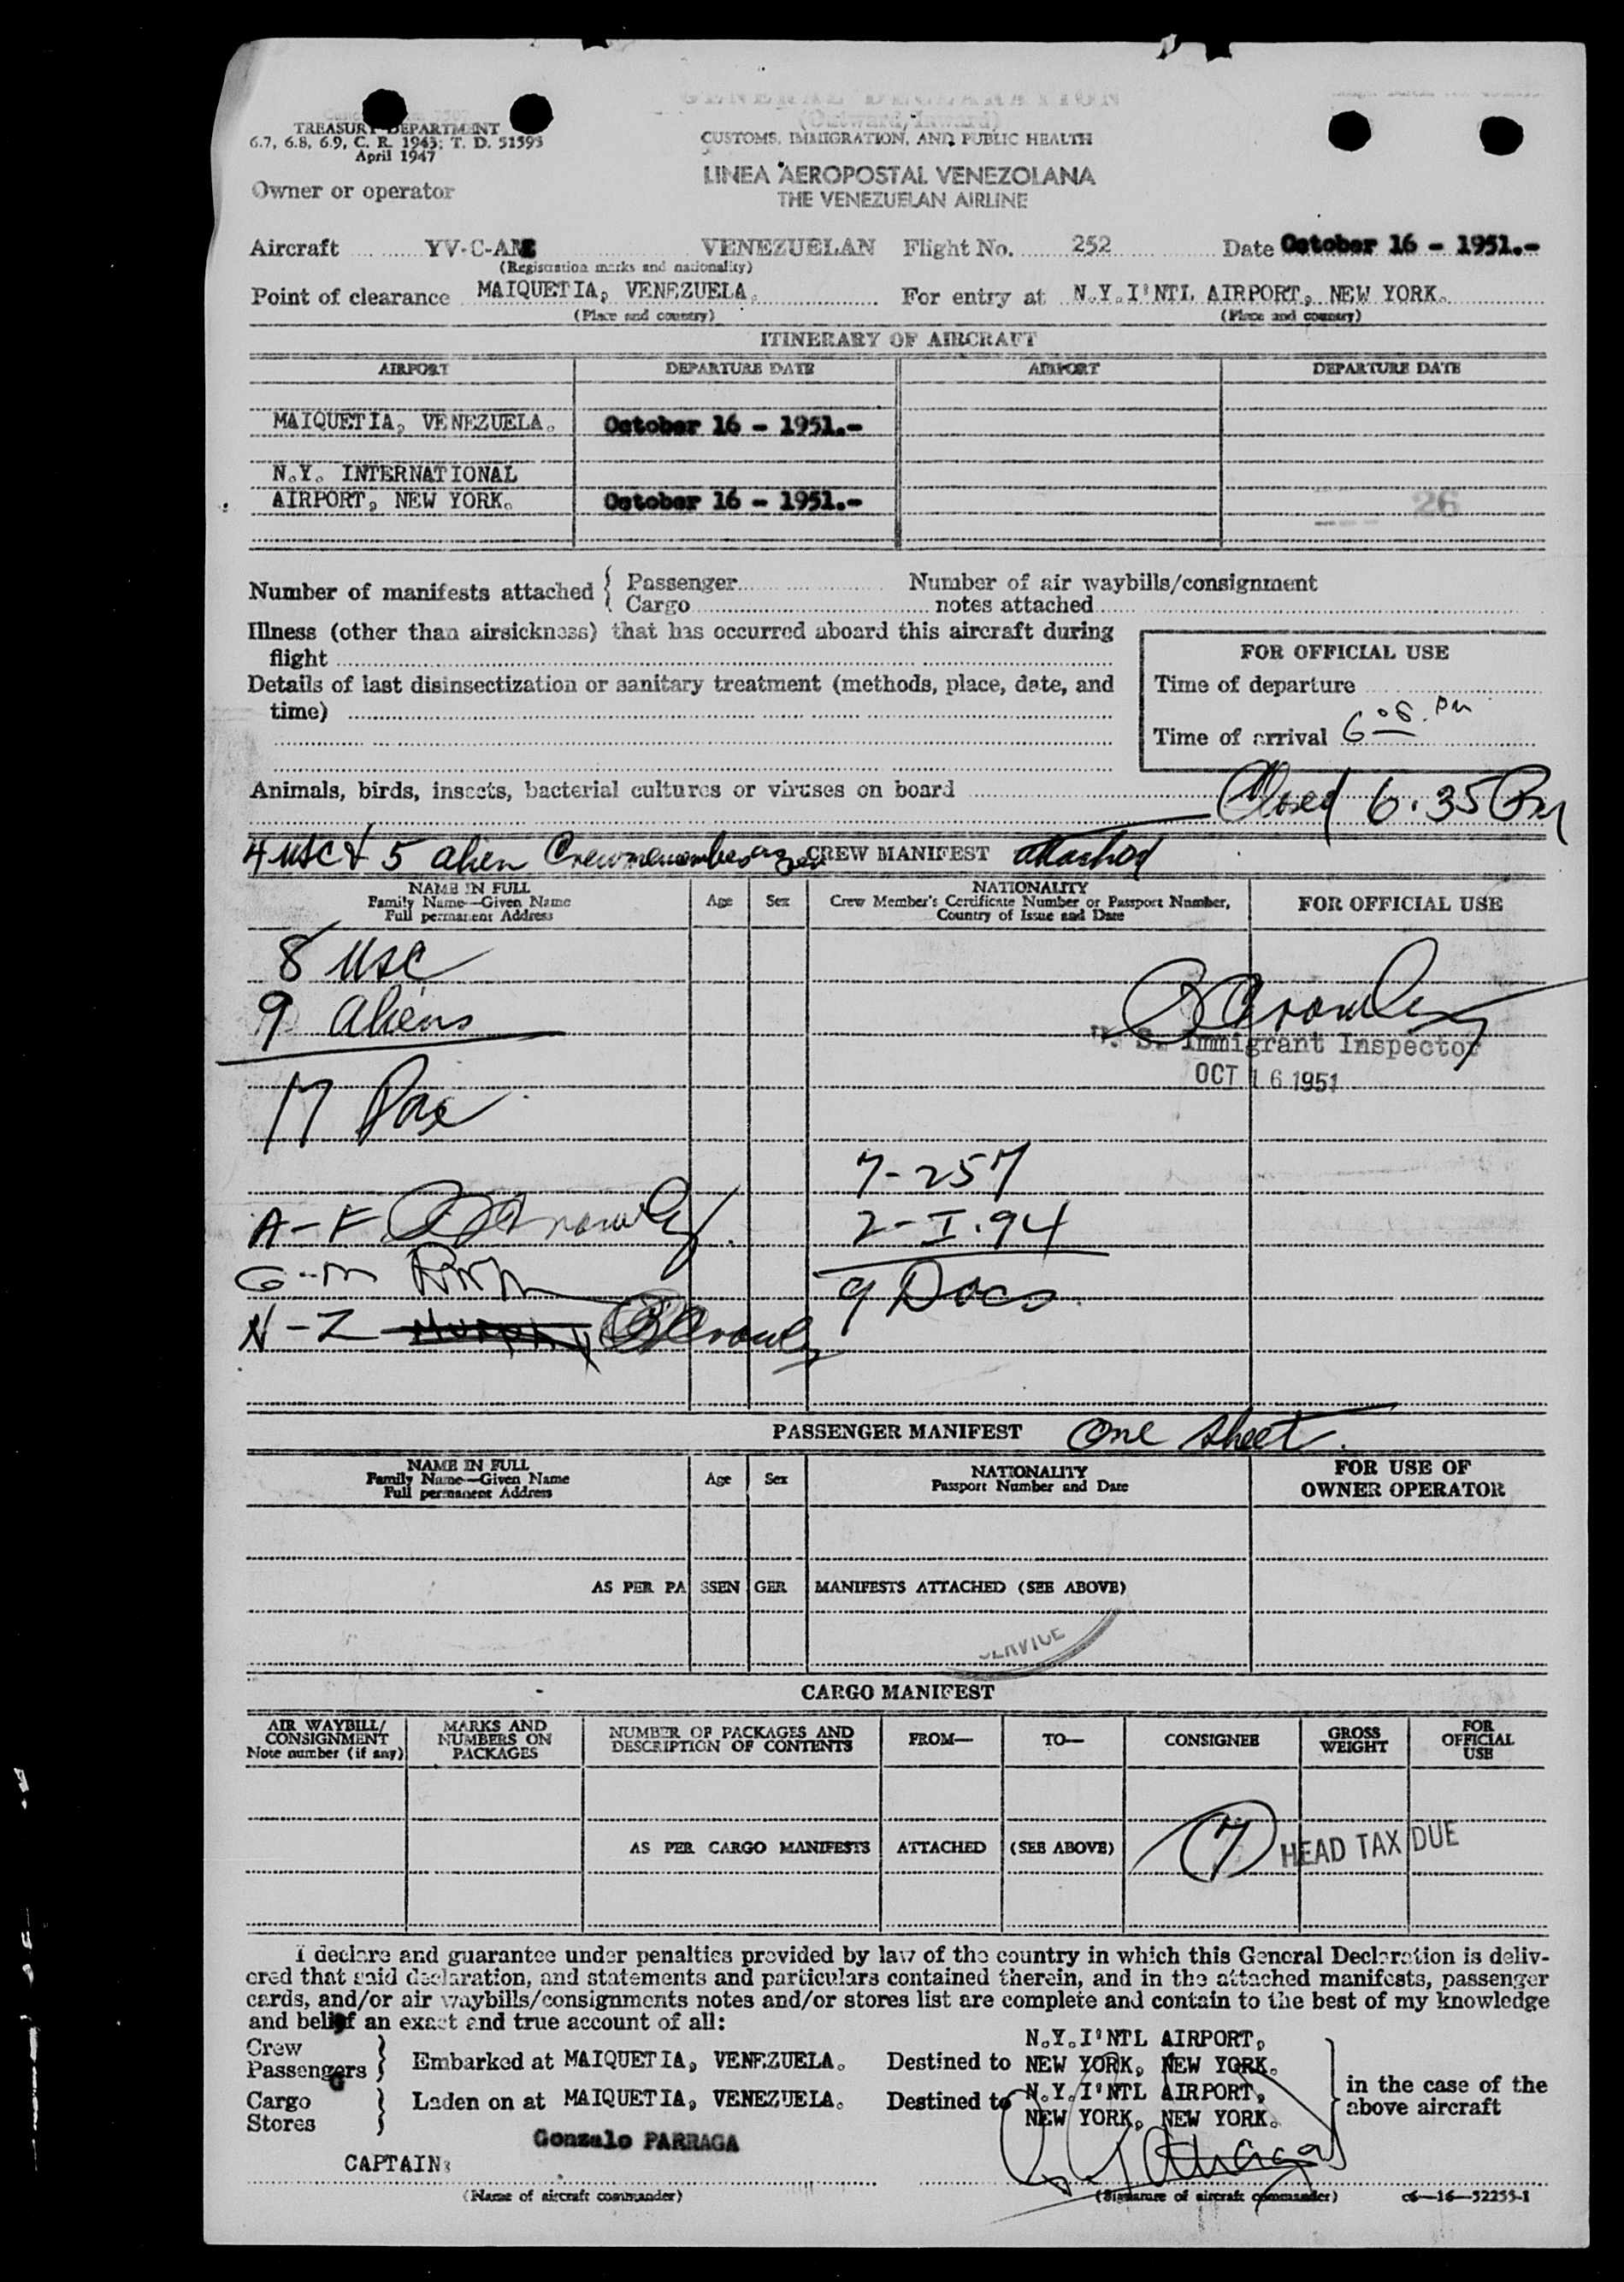 GENERAL DECLARATION
(Outward/Inward)
TREASURY DEPARTMENT
6.7, 6.8, 6.9, C. R. 1943; T. D. 51595
April 1947
CUSTOMS, IMMIGRATION, AND PUBLIC HEALTH
LINEA AEROPOSTAL VENEZOLANA
THE VENEZUELAN AIRLINE
Owner or operator
Aircraft YV-C-AME VENEZUELAN Flight No. 252 Date October 16 - 1951.-
(Registration marks and nationality)
Point of clearance MAIQUETIA, VENEZUELA. For entry at N.Y.I'NTL AIRPORT, NEW YORK.
(Place and country) (Place and country)
ITINERARY OF AIRCRAFT
AIRPORT DEPARTURE DATE AIRPORT DEPARTURE DATE
MAIQUETIA, VENEZUELA. October 16 - 1951.-
N.Y. INTERNATIONAL
AIRPORT, NEW YORK. October 16 - 1951.- 26
Number of manifests attached { Passenger Number of air waybills/consignment
Cargo notes attached
Illness (other than airsickness) that has occurred aboard this aircraft during
flight
Details of last disinsectization or sanitary treatment (methods, place, date, and
time)
FOR OFFICIAL USE
Time of departure
Time of arrival 6 05 Pm
Animals, birds, insects, bacterial cultures or viruses on board
Closed 6.35 Pm
4 USC & 5 alien Crewmembers as per CREW MANIFEST attached
NAME IN FULL
Family Name—Given Name
Full permanent Address
Age Sex
NATIONALITY
Crew Member's Certificate Number or Passport Number,
Country of Issue and Date
FOR OFFICIAL USE
8 USC
9 aliens
17 Pax
Crowley
U. S. Immigrant Inspector
OCT 16 1951
7-257
2-I.94
9 Docs.
A-F Crowley
G-M
N-Z Murphy Crowley
PASSENGER MANIFEST One sheet.
NAME IN FULL
Family Name—Given Name
Full permanent Address
Age Sex
NATIONALITY
Passport Number and Date
FOR USE OF
OWNER OPERATOR
AS PER PASSENGER MANIFESTS ATTACHED (SEE ABOVE)
SERVICE
CARGO MANIFEST
AIR WAYBILL/
CONSIGNMENT
Note number (if any)
MARKS AND
NUMBERS ON
PACKAGES
NUMBER OF PACKAGES AND
DESCRIPTION OF CONTENTS
FROM—
TO—
CONSIGNEE
GROSS
WEIGHT
FOR
OFFICIAL
USE
AS PER CARGO MANIFESTS ATTACHED (SEE ABOVE)
7 HEAD TAX DUE
I declare and guarantee under penalties provided by law of the country in which this General Declaration is deliv-
ered that said declaration, and statements and particulars contained therein, and in the attached manifests, passenger
cards, and/or air waybills/consignments notes and/or stores list are complete and contain to the best of my knowledge
and belief an exact and true account of all:
Crew
Passengers } Embarked at MAIQUETIA, VENEZUELA. Destined to N.Y.I'NTL AIRPORT,
NEW YORK, NEW YORK.
Cargo
Stores } Laden on at MAIQUETIA, VENEZUELA. Destined to N.Y.I'NTL AIRPORT,
NEW YORK, NEW YORK.
in the case of the
above aircraft
Gonzalo PARRAGA
CAPTAIN:
(Name of aircraft commander) (Signature of aircraft commander) c6—16—52255-1